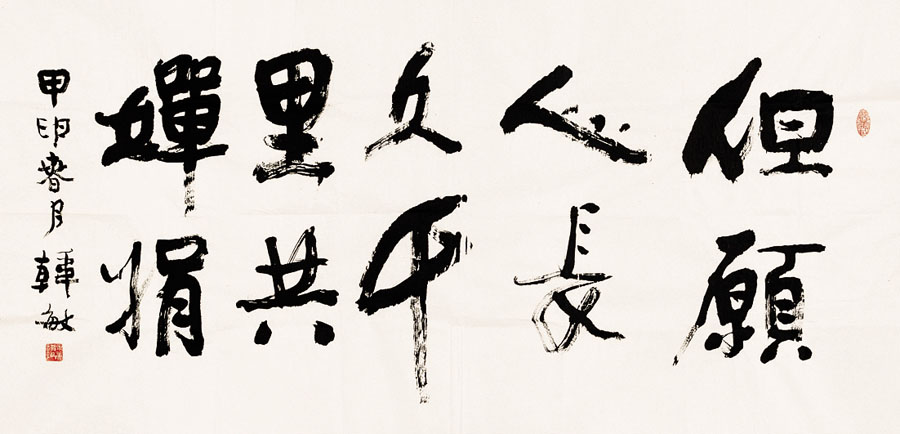 但願
人長
久千
里共
嬋娟
甲申春月韓敏